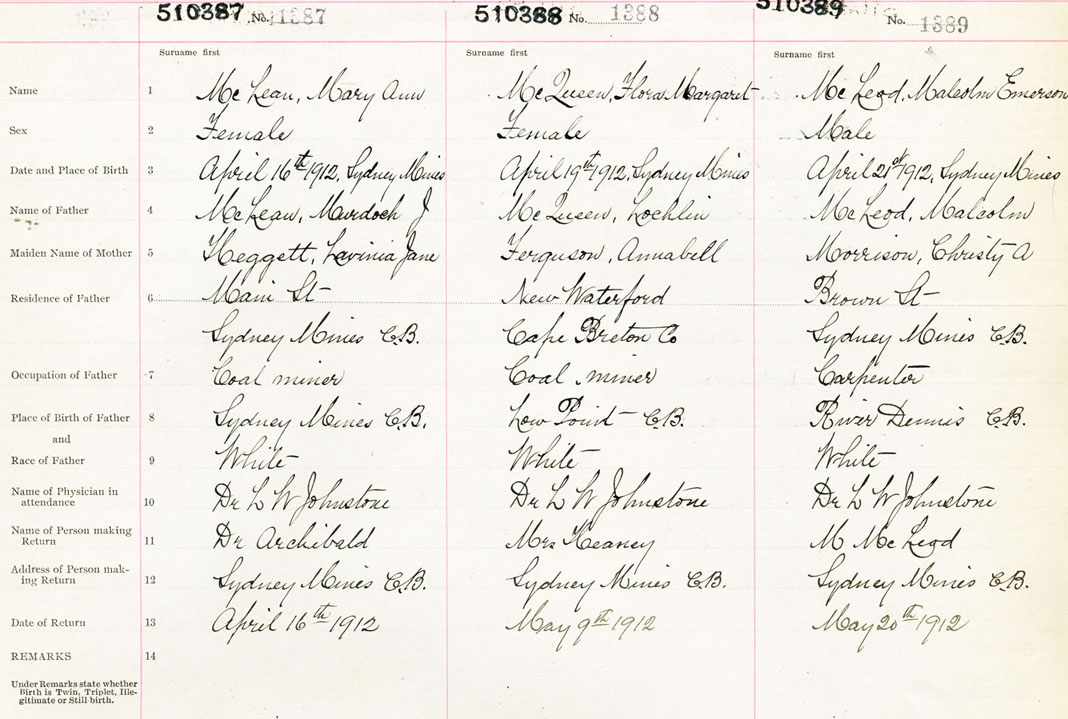 510387 No. 1387 510388 No. 1388 510389 No. 1389
Surname first Surname first Surname first
Name 1 McLean, Mary Ann McQueen, Flora Margaret McLeod, Malcolm Emerson
Sex 2 Female Female Male
Date and Place of Birth 3 April 16th 1912, Sydney Mines April 19th 1912, Sydney Mines April 21st 1912, Sydney Mines
Name of Father 4 McLean, Murdoch J McQueen, Lochlin McLeod, Malcolm
Maiden Name of Mother 5 Heggett, Lavinia Jane Ferguson, Annabell Morrison, Christy A
Residence of Father 6 Main St New Waterford Brown St
Sydney Mines C.B. Cape Breton Co Sydney Mines C.B.
Occupation of Father 7 Coal miner Coal miner Carpenter
Place of Birth of Father 8 Sydney Mines C.B. Low Point C.B. River Dennis C.B.
and
Race of Father 9 White White White
Name of Physician in
attendance 10 Dr L W Johnstone Dr L W Johnstone Dr L W Johnstone
Name of Person making
Return 11 Dr Archibald Mrs Heaney M McLeod
Address of Person mak-
ing Return 12 Sydney Mines C.B. Sydney Mines C.B. Sydney Mines C.B.
Date of Return 13 April 16th 1912 May 9th 1912 May 20th 1912
REMARKS 14
Under Remarks state whether
Birth is Twin, Triplet, Ille-
gitimate or Still birth.